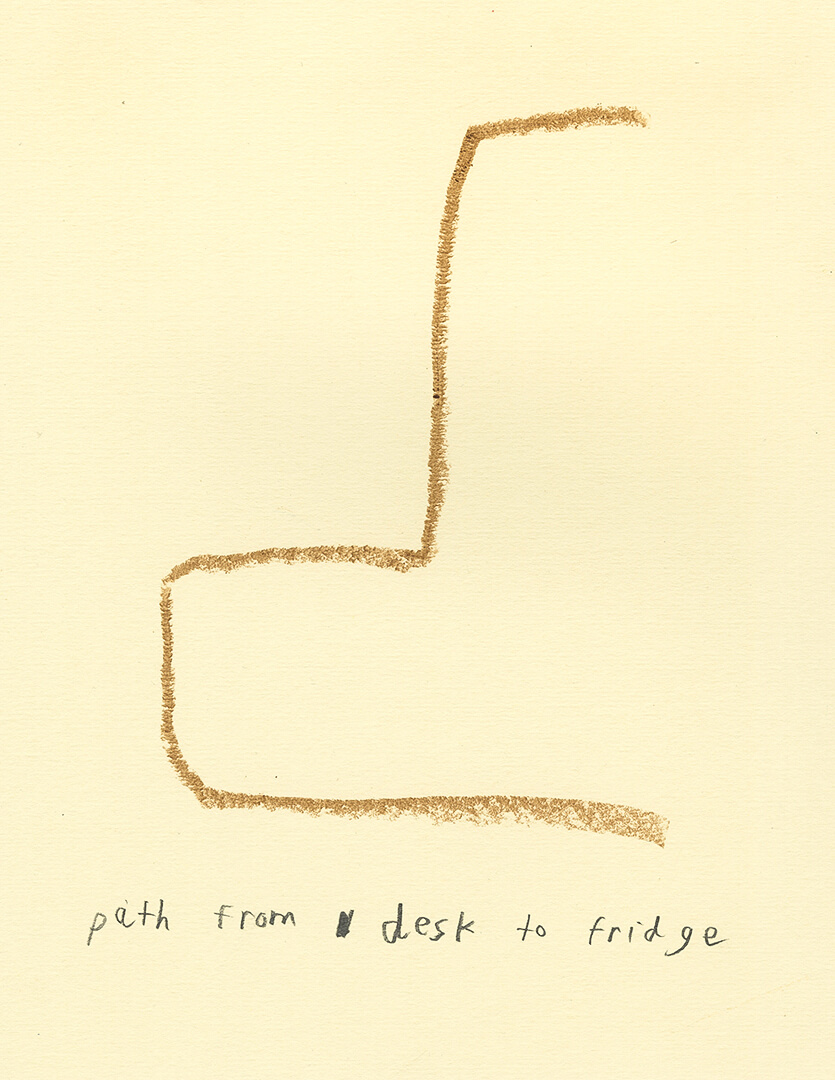 path from desk to fridge